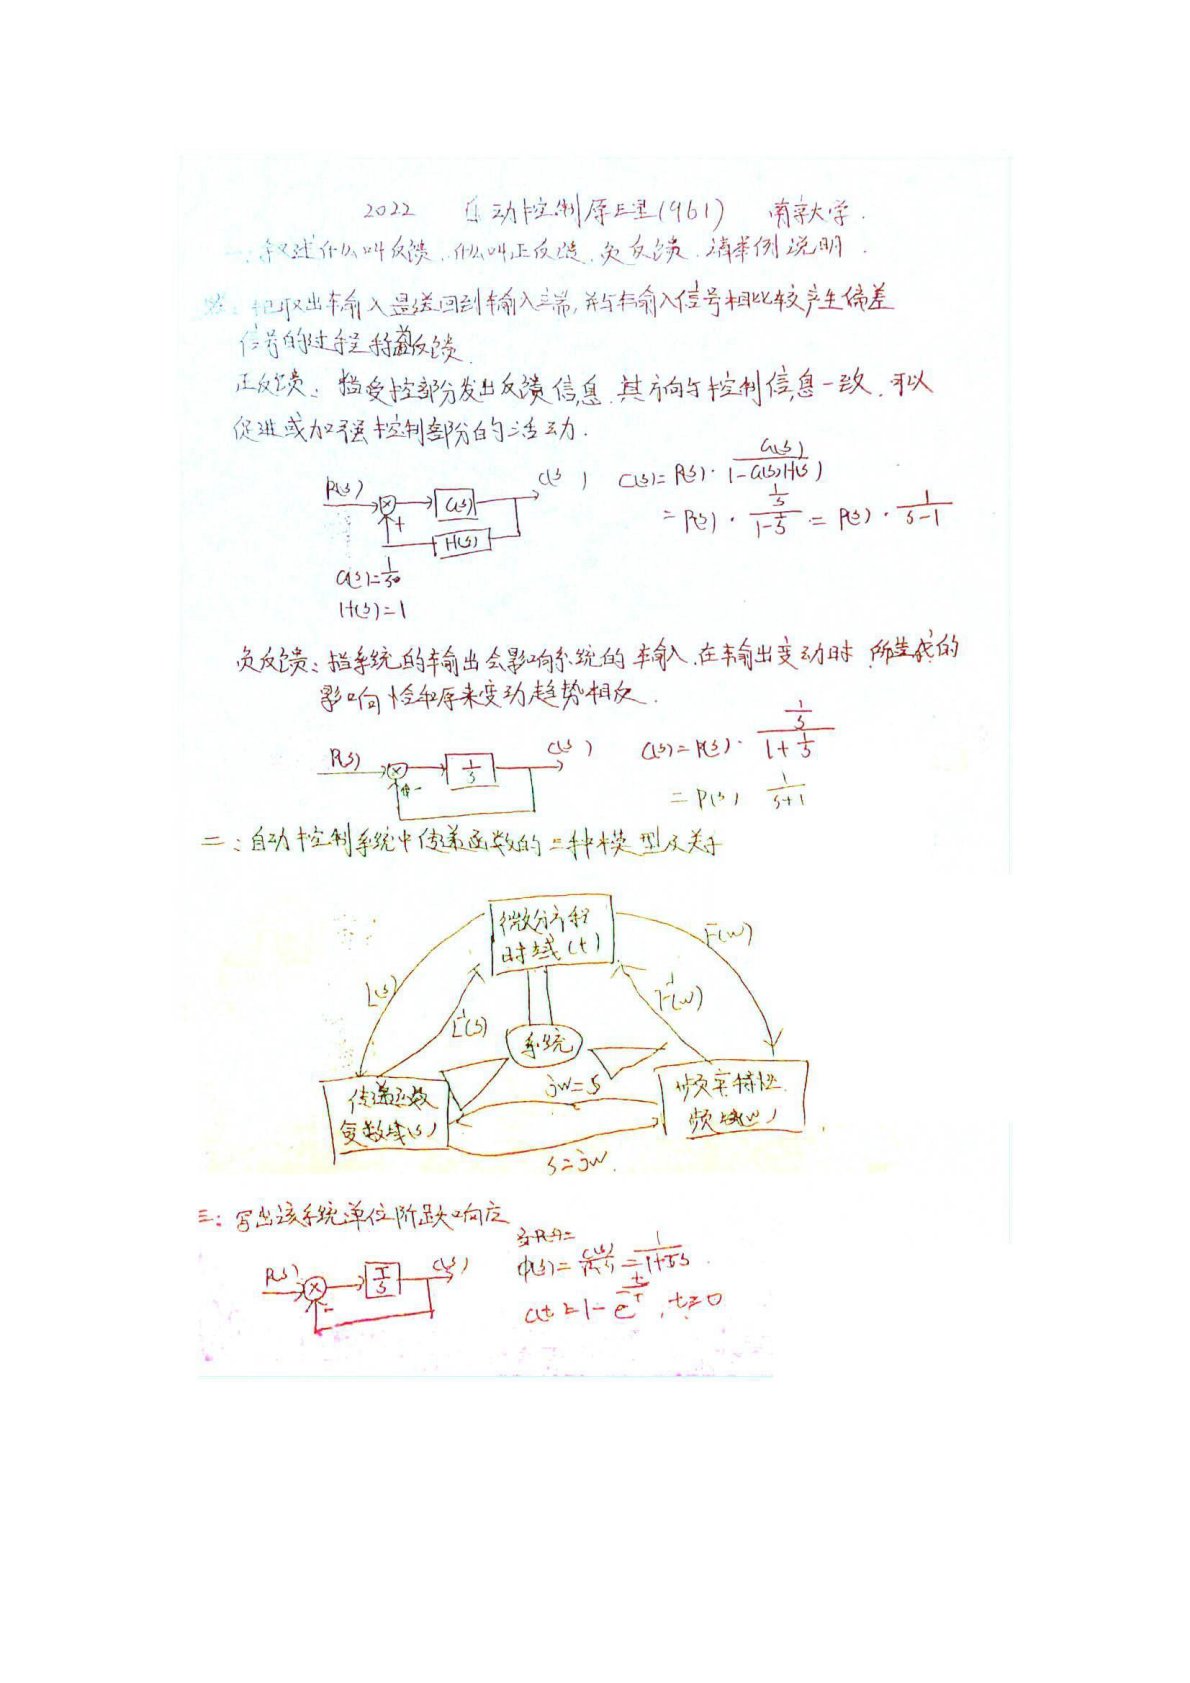 2022 自动控制原理(961) 南京大学.
一:叙述什么叫反馈.什么叫正反馈.负反馈.请举例说明.
把取出输入量送回到输入端,并与输入信号相比较产生偏差
信号的过程称为反馈.
正反馈:指受控部分发出反馈信息.其方向与控制信息一致.可以
促进或加强控制部分的活动.
R(s) + G(s) H(s) C(s)
C(s)=R(s)·G(s)/(1-G(s)H(s))
=R(s)·(1/s)/(1-1/s)=R(s)·1/(s-1)
H(s)=1
负反馈:指系统的输出会影响系统的输入.在输出变动时.所造成的
影响恰和原来变动趋势相反.
R(s) - 1/s C(s)
C(s)=R(s)·(1/s)/(1+1/s)
=R(s) 1/(s+1)
二:自动控制系统中传递函数的三种模型及关于
微分方程
时域(t)
L(s)
L⁻¹(s)
F(w)
F⁻¹(w)
系统
传递函数
复数域(s)
jw=s
频率特性
频域(w)
s=jw.
三:写出该系统单位阶跃响应
R(s) - T/s C(s)
Φ(s)=C(s)/R(s)=1/(1+Ts)
c(t)=1-e^(-t/T),t≥0